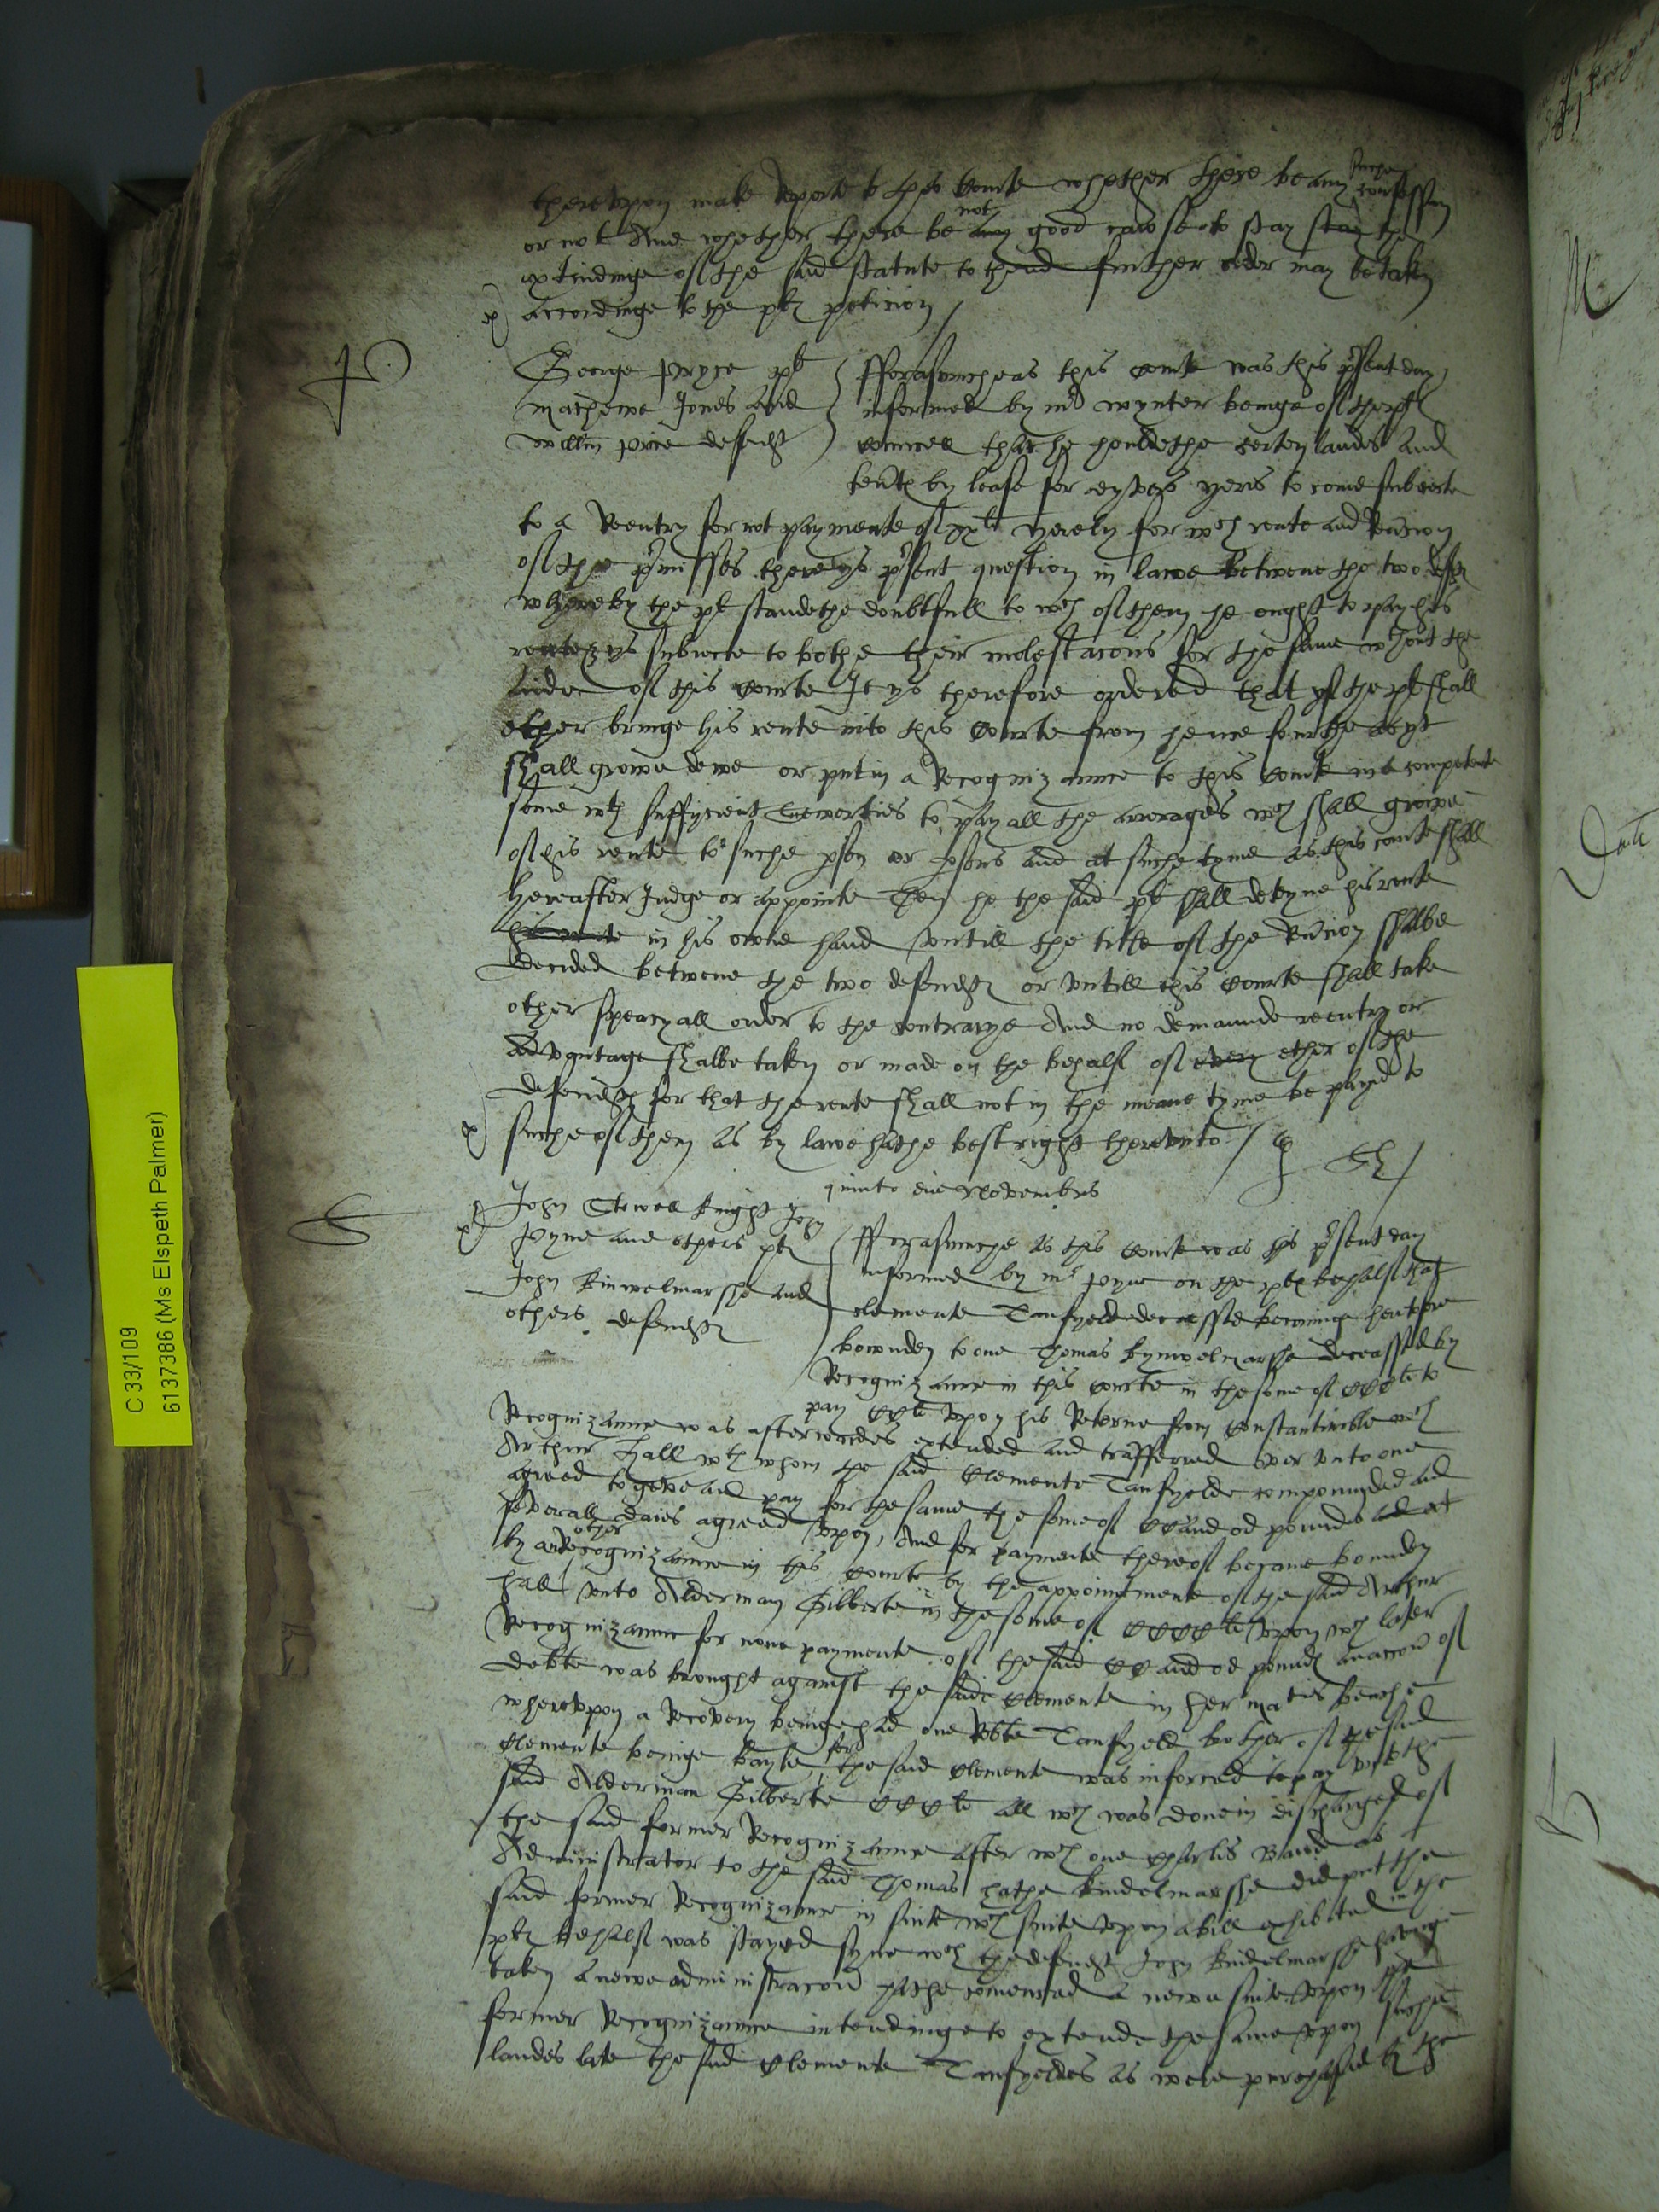 therevpon make Reporte to this Courte whether there be any suche confession
or not And whether there be any not good cawse to stay stay the
extendinge of the said statute to thend further order may be taken
accordinge to the pltes peticion
George Pryce plt
Mathewe Jones and
Willm Price defendtes
fforasmuche as this Courte was this pnte day
informed by mr Wynter beinge of the plts
Councell that he houldethe certen landes and
tentes by lease for dyvers yeres to come subiecte
to a Reentry for not paymente of xxli yerely for wch rente and Reucion
of the pmisses there ys pnte question in lawe betwene the two deftes
whereby the plt standethe doubtfull to wch of them he oughte to pay his
rente & ys subiecte to bothe their molestacons for the same wthout the
aide of this Courte It ys therefore ordered that yf the plt shall
ether bringe his rente into this Courte from hence fourthe as yt
shall growe dewe or put in a Recognizaunce to this Courte in a competente
some wth suffycient Suerties to pay all the arrerages wch shall growe
of his rente to suche pson or psons and at suche tyme as this courte shall
hereafter Judge or appointe Then he the said plt shall deteyne his rente
his rente in his owne hand vntill the title of the Reucion shalbe
decided betwene the two defendtes or vntill this Courte shall take
other specyall order to the contrarye And no demaunde reentry or
advantage shalbe taken or made on the behalf of every ether of the
defendtes for that the rente shall not in the meane tyme be payed to
suche of them as by lawe hathe best right therevnto
quinto die Novembris
John Stowell knight John
Pyne and others pltes
John Kinwelmarshe and
others defendtes
fforasmuche as this Courte was this pnte day
informed by mr Pyne on the pltes behalf that
Clemente Tanfyelde decessed becominge heretofore
bounden to one Thomas Kynwelmarshe deceassed by
Recognizaunce in this Courte in the some of CCCli to
pay CCli vpon his Retorne from Constantinoble wch
Recognizaunce was afterwardes extended and transferred over vnto one
Arthur Hall wth whom the said Clemente Tanfyelde compounded and
agreed to geve and pay for the same the some of CC and od poundes and at
severall daies agreed vpon, And for paymente thereof became bounden
by an other Recognizaunce in this Courte by the appointmente of the said Arthur
Hall vnto Alderman Gilberte in the some of CCCCli vpon wch later
Recognizaunce for none paymente of the said CC and od poundes an accon of
debte was brought against the said Clemente in her maties benche
wherevpon a Recovery beinge had one Robte Tanfyeld brother of the said
Clemente beinge bayle for the said Clemente was inforced to pay vnto the
said Alderman Gilberte CCCli all wch was done in discharge of
the said former Recognizaunce after wch one Charles Bawde as
Administrator to the said Thomas hathe Kindelmarshe did put the
said former Recognizaunce in suite wch suite vpon a bill exhibited in the
pltes behalf was stayed syne wch the defendt John Kindelmarshe having
taken a newe administracon hathe comenced a newe suite vpon the
former Recognizaunce intendinge to extende the same vpon suche
landes late the said Clemente Tanfyeldes as were purchased by the
C 33/109
6137386 (Ms Elspeth Palmer)